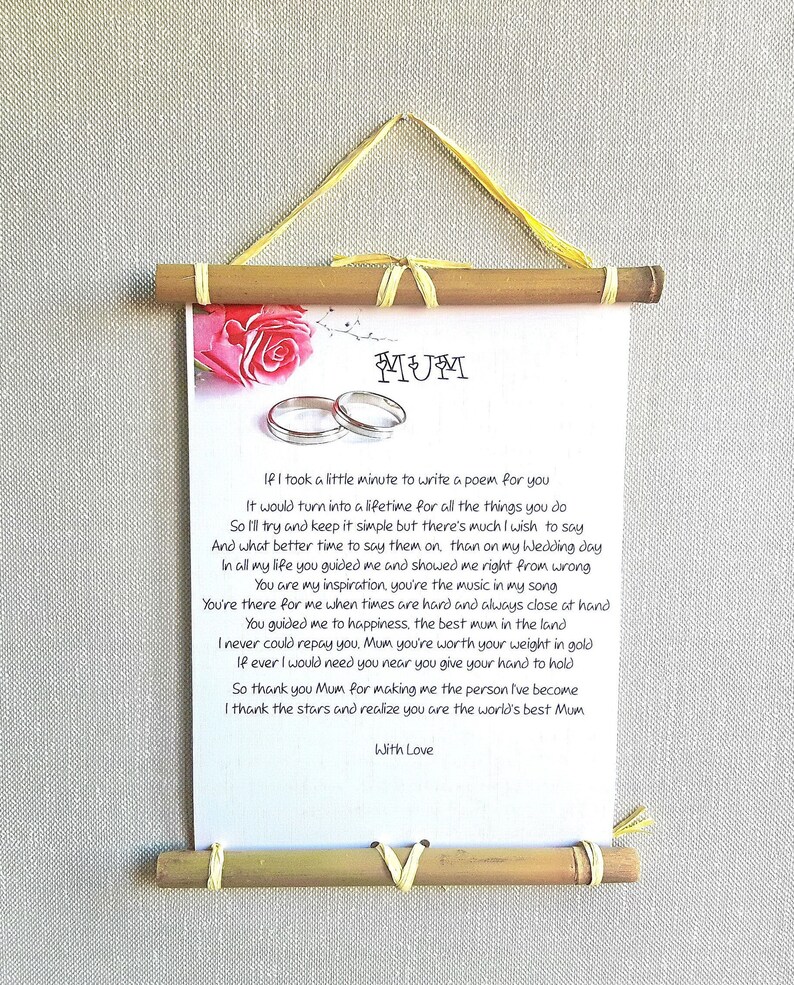 MUM
If I took a little minute to write a poem for you
It would turn into a lifetime for all the things you do
So I'll try and keep it simple but there's much I wish to say
And what better time to say them on, than on my Wedding day
In all my life you guided me and showed me right from wrong
You are my inspiration, you're the music in my song
You're there for me when times are hard and always close at hand
You guided me to happiness, the best mum in the land
I never could repay you, Mum you're worth your weight in gold
If ever I would need you near you give your hand to hold
So thank you Mum for making me the person I've become
I thank the stars and realize you are the world's best Mum
With Love